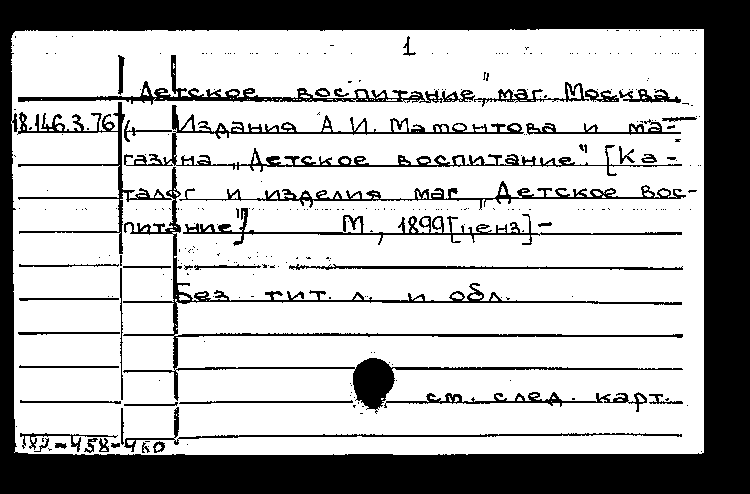 1
„Детское воспитание", маг. Москва.
18.146.3.767 Издания А. И. Мамонтова и ма-
газина „Детское воспитание". [Ка-
талог и изделия маг. „Детское вос-
питание"]. М., 1899 [ценз.] -
Без тит. л. и обл.
см. след. карт.
182-458-460